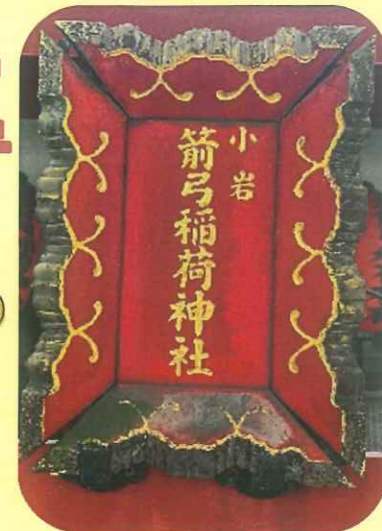 小岩
箭弓稲荷神社